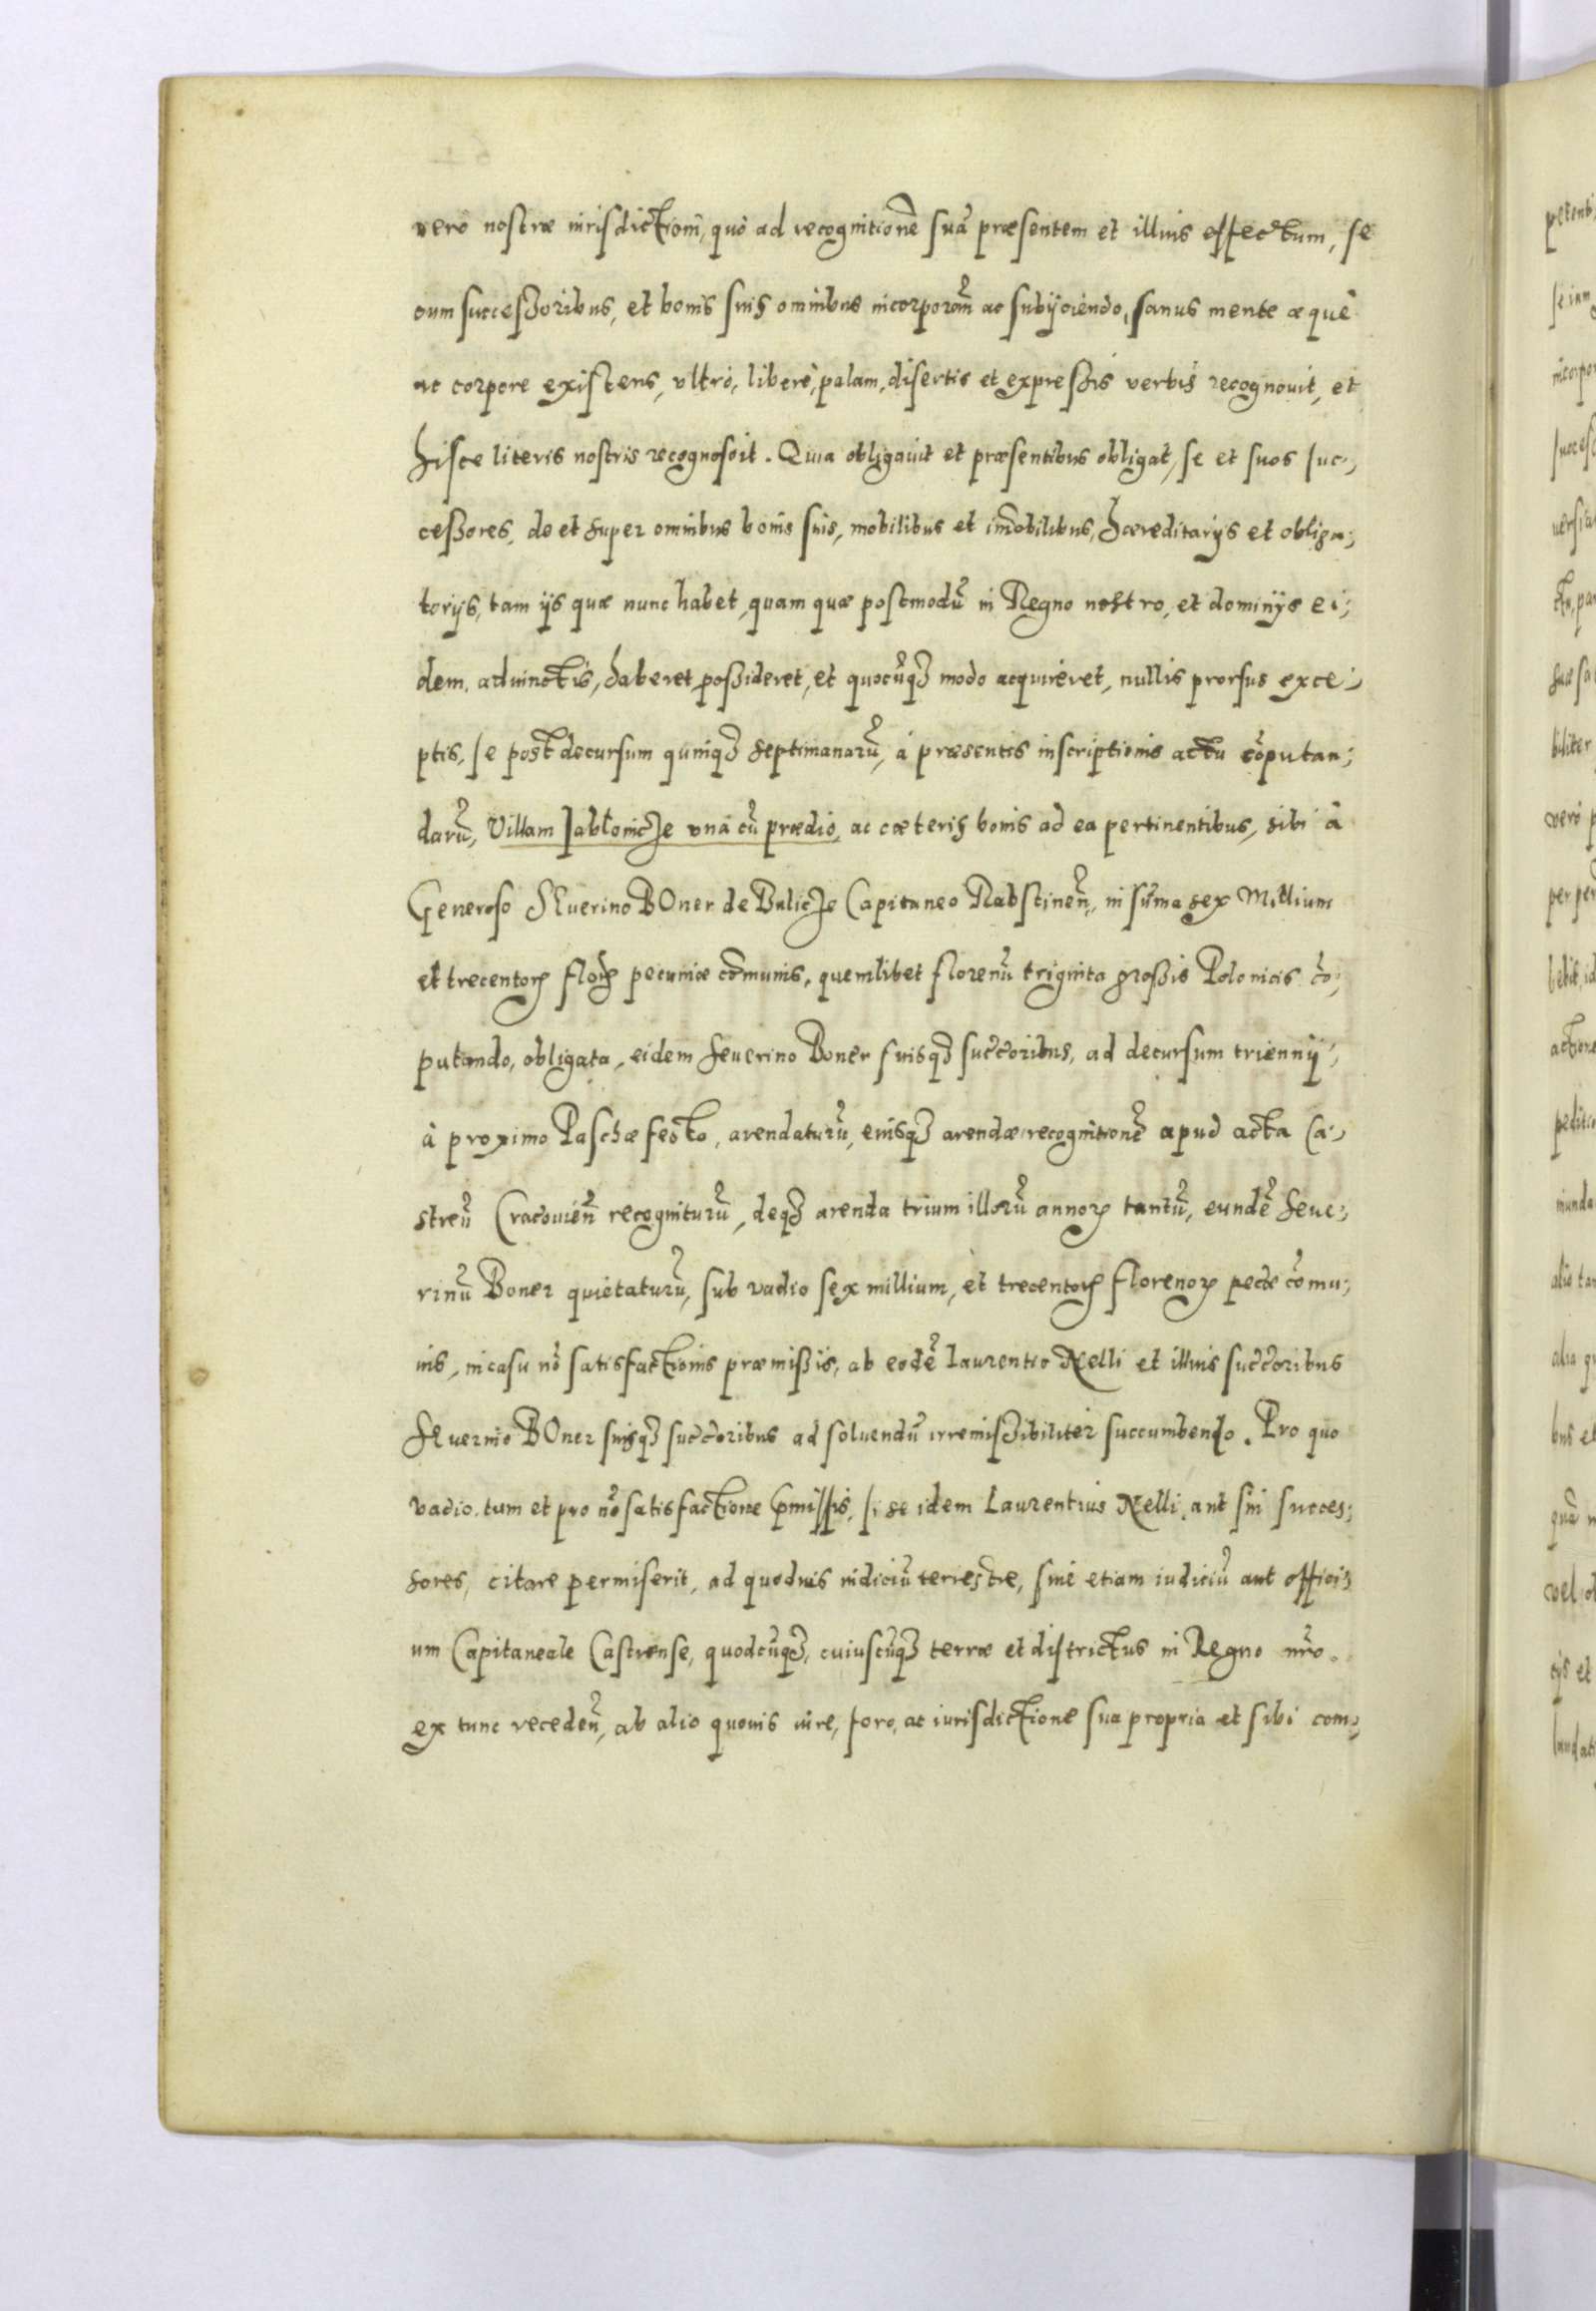 vero nostræ iurisdictioni, quò ad recognitionē suā præsentem et illius effectum, se
cum successoribus, et bonis suis omnibus incorporan̄ ac subijciendo, sanus mente æquè
ac corpore existens, vltrò, liberè, palam, disertis et expressis verbis recognouit, et
hisce literis nostris recognoscit. Quia obligauit et præsentibus obligat, se et suos suc-,
ceßores, de et super omnibus bonis suis, mobilibus et im̄obilibus, hæreditarijs et obliga-;
torijs, tam ijs quæ nunc habet, quam quæ postmodū in Regno nostro, et dominijs ei-;
dem adiunctis, haberet, poßideret, et quocūqȝ modo acquireret, nullis prorsus exce-;
ptis, se post decursum quinqȝ septimanarū, à præsentis inscriptionis actu cōputan-;
darū, Villam Jabłonicze vnā cū prædio, ac cæteris bonis ad ea pertinentibus, sibi à
Generoso Seuerino BOner de Balicze Capitaneo Rabstinēn, in sūma sex Millium
et trecentoꝝ floꝝ pecuniæ com̄unis, quemlibet florenū triginta großis Polonicis cō-;
putando, obligata, eidem Seuerino Boner suisqȝ succ̄oribus, ad decursum triennij,
à proximo Paschæ festo, arendaturū, eiusqȝ arendæ recognitionē apud acta Ca-;
streñ Cracouieñ recogniturū, deqȝ arenda trium illorū annoꝝ tantū, eundē Seue-;
rinū Boner quietaturū, sub vadio sex millium, et trecentoꝝ florenoꝝ pec̄æ cōmu-;
nis, in casu nō satisfactionis præmißis, ab eodē Laurentio Nelli et illius succ̄oribus
Seuerino BOner suisqȝ succ̄oribus ad soluendū irremißibiliter succumbendo. Pro quo
vadio, tum et pro nō satisfactione p̄missis, si se idem Laurentius Nelli, aut sui succes-;
sores, citare permiserit, ad quoduis iudiciū terrestre, siue etiam iudiciū aut offici-;
um Capitaneale Castrense, quodcūqȝ, cuiuscūqȝ terræ et districtus in Regno nr̄o.
ex tunc recedeñ, ab alio quouis iure, foro, ac iurisdictione sua propria et sibi com-;